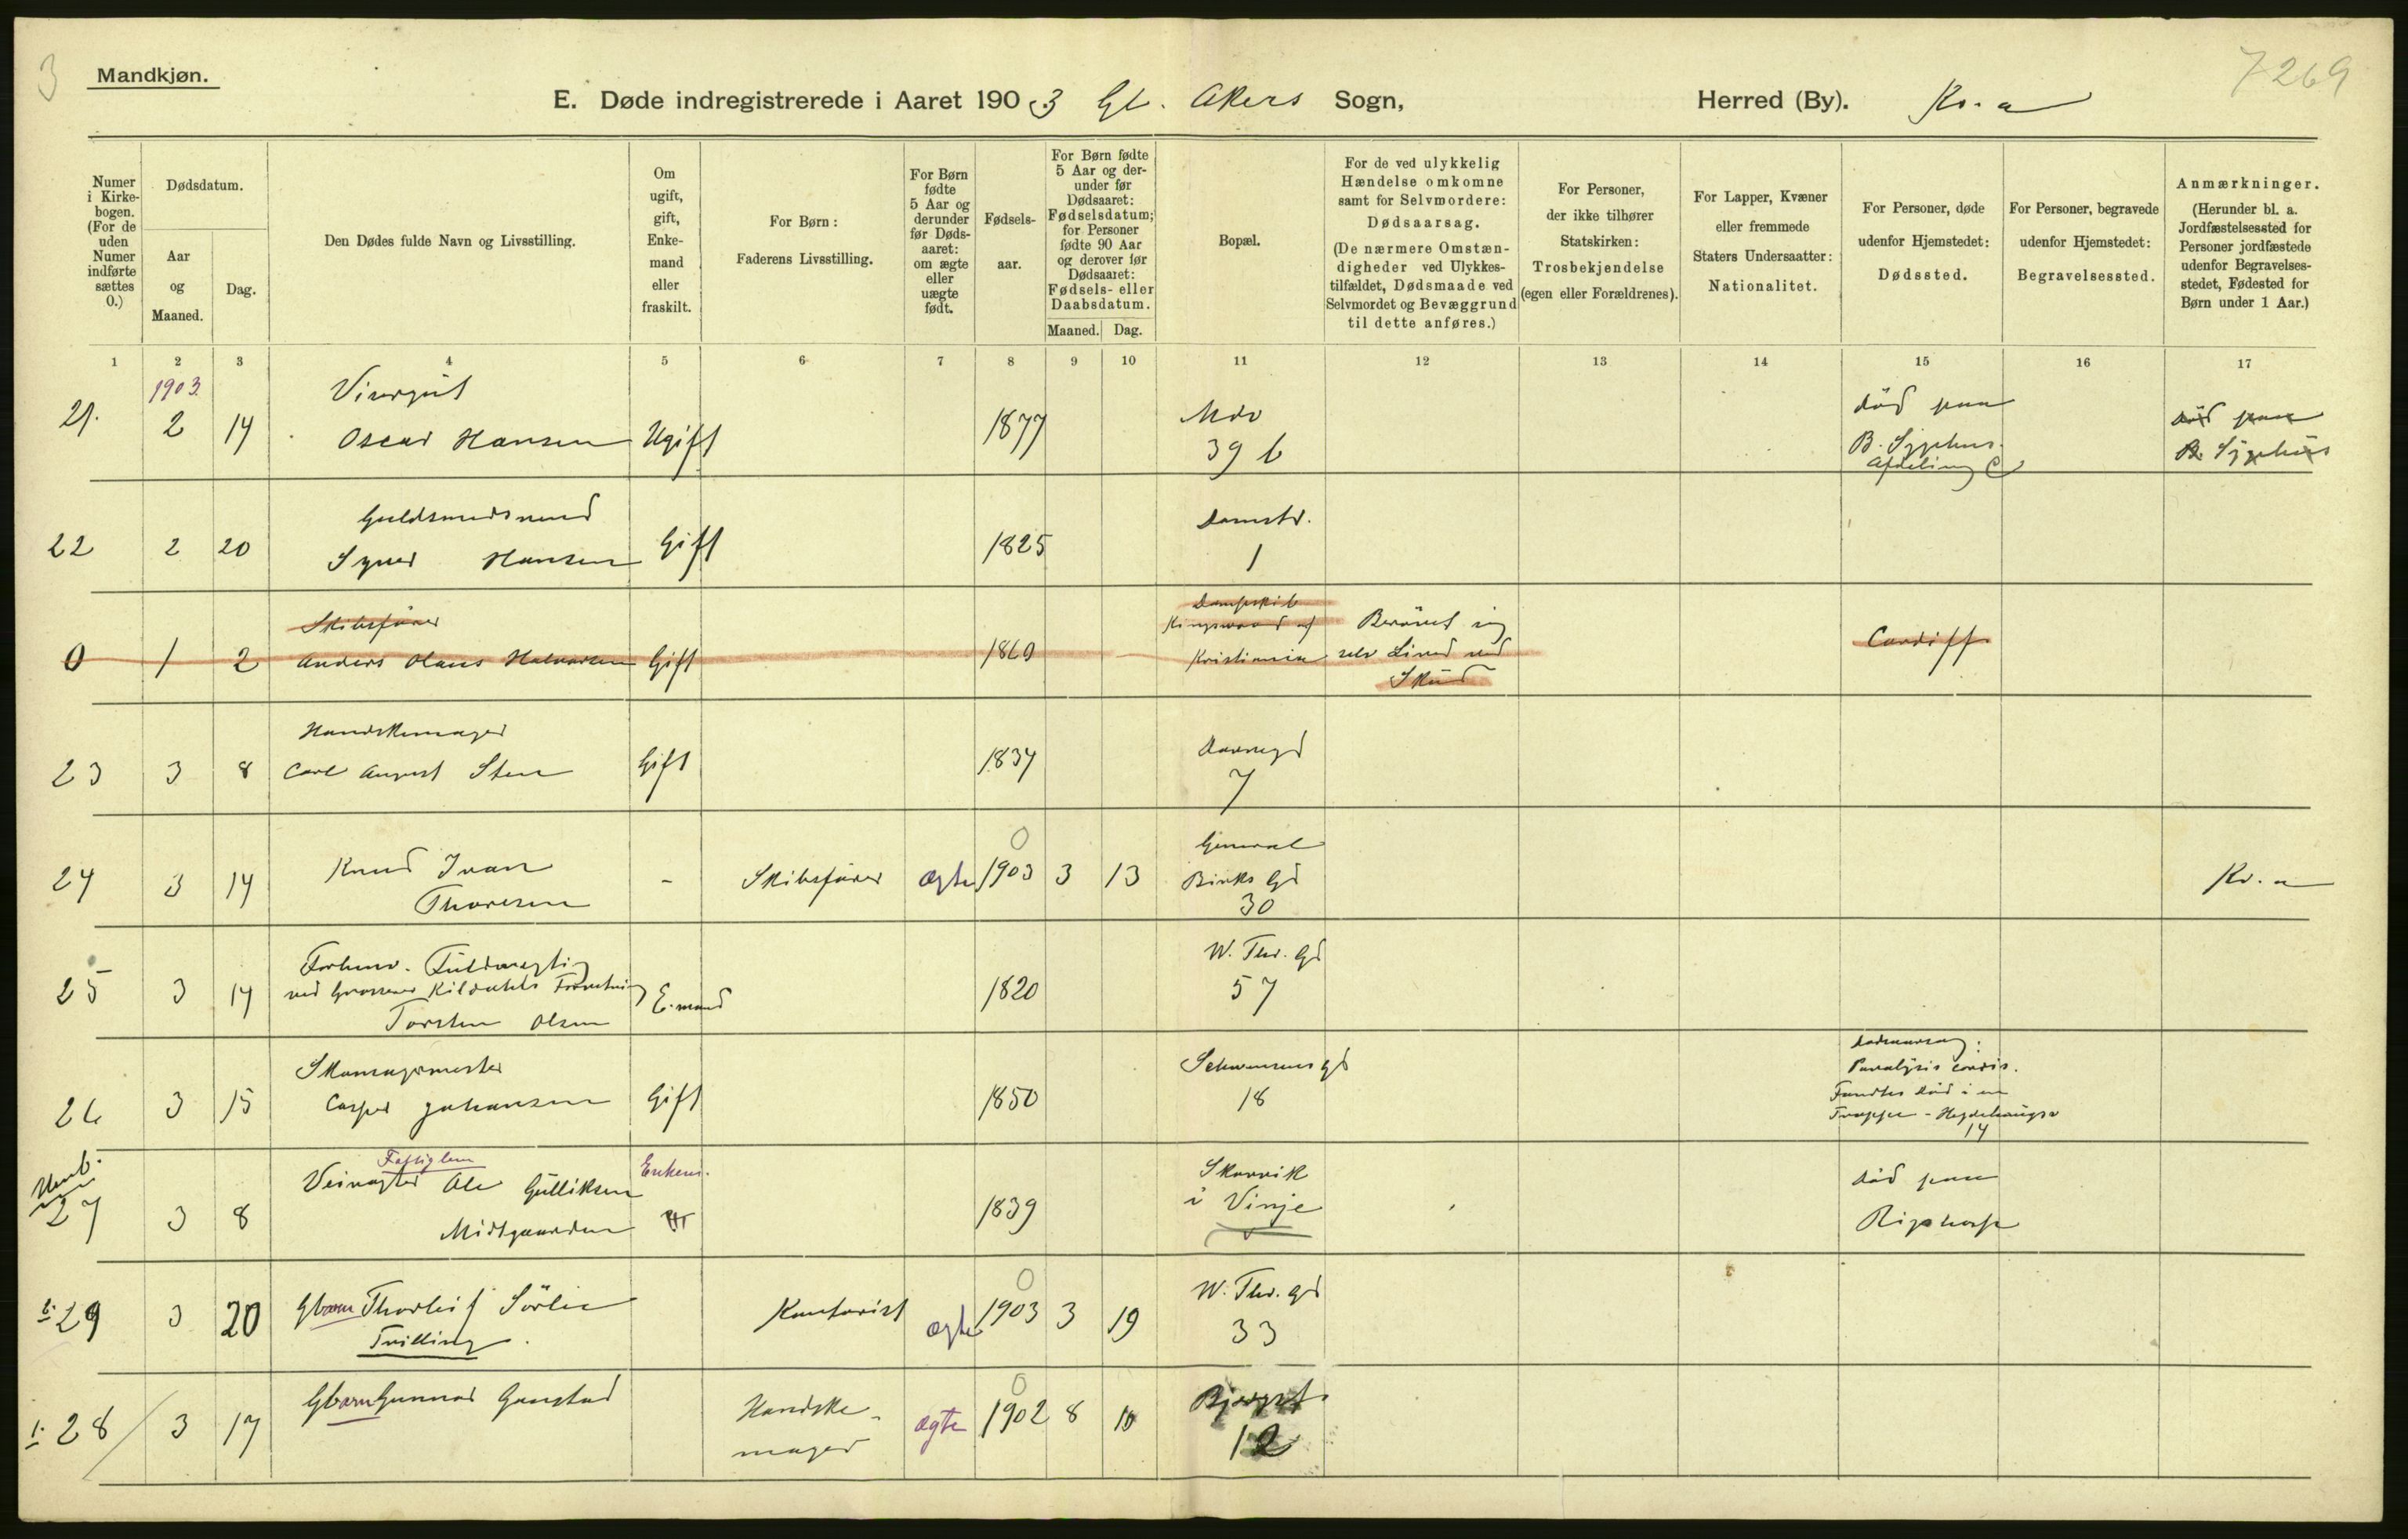 3
Mandkjøn.
7269
E. Døde indregistrerede i Aaret 1903 Gl. Akers Sogn, Herred (By). Kr.a
Numer i Kirkebogen. (For de uden Numer indførte sættes 0.)
Dødsdatum.
Aar og Maaned.
Dag.
Den Dødes fulde Navn og Livsstilling.
Om ugift, gift, Enkemand eller fraskilt.
For Børn: Faderens Livsstilling.
For Børn fødte 5 Aar og derunder før Dødsaaret: om ægte eller uægte født.
Fødselsaar.
For Børn fødte 5 Aar og derunder før Dødsaaret: Fødselsdatum; for Personer fødte 90 Aar og derover før Dødsaaret: Fødsels- eller Daabsdatum.
Maaned. Dag.
Bopæl.
For de ved ulykkelig Hændelse omkomne samt for Selvmordere: Dødsaarsag. (De nærmere Omstændigheder ved Ulykkestilfældet, Dødsmaade ved Selvmordet og Bevæggrund til dette anføres.)
For Personer, der ikke tilhører Statskirken: Trosbekjendelse (egen eller Forældrenes).
For Lapper, Kvæner eller fremmede Staters Undersaatter: Nationalitet.
For Personer, døde udenfor Hjemstedet: Dødssted.
For Personer, begravede udenfor Hjemstedet: Begravelsessted.
Anmærkninger. (Herunder bl. a. Jordfæstelsessted for Personer jordfæstede udenfor Begravelsesstedet, Fødested for Børn under 1 Aar.)
1 2 3 4 5 6 7 8 9 10 11 12 13 14 15 16 17
1903.
21. 2 14 Visergut
Oscar Hansen Ugift 1877 Mdv
39 b død paa
B. Sygehus.
Afdeling C død paa
B. Sygehus
22 2 20 Guldsmedsvend
Syver Hansen Gift 1825 Damstr.
1
0 1 2 Skibsfører
Anders Olaus Halvorsen Gift 1860 Dampskib
Kingswood af
Kristiania Berøvet sig
selv Livet ved
Skud Cardiff
23 3 8 Handskemager
Carl August Sten Gift 1834 Darresgd
7
24 3 14 Knud Ivan
Thoresen - Skibsfører ægte 0
1903 3 13 General
Birks Gd
30 Kr.a
25 3 14 Forhenv. Fuldmægtig
ved Grosserer Kildahls Forretning
Torsten Olsen E.mand 1820 W. Thr. Gd
57
26 3 15 Skomagermester
Casper Johansen Gift 1850 Schwensens gd
18 Dødsaarsag:
Paralysis cordis.
Fandtes død i en
Trappe - Hegdehaugsv
14
27 3 8 Fattiglem
Veivogter Ole Gulliksen
Midtgaarden Enkem. 1839 Skarvik
i Vinje død paa
Rigshosp
2. 29 3 20 Gbarn Thorleif Sörlie
Tvilling. Kontorist ægte 0
1903 3 19 W. Thr. gd
33
1. 28 3 17 Gbarn Gunnar Ganstad Handske-
mager ægte 0
1902 8 10 Bjergst.
12